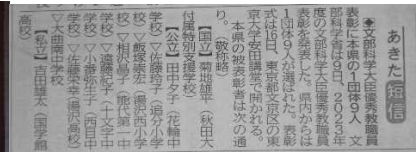 あきた短信
◆文部科学大臣優秀教職員
表彰に本県の1団体9人 文
部科学省は9日、2023年
度の文部科学大臣優秀教職員
表彰を発表した。県内からは
1団体9人が選ばれた。表彰
式は16日、東京都文京区の東
京大学安田講堂で開かれる。
本県の被表彰者は次の通
り。(敬称略)
【国立】菊地雄平(秋田大
付属特別支援学校)
【公立】田中夕子(花輪中
学校)▽佐藤玲子(追分小学
校)▽飯塚(湯沢西小学
校)▽相沢昌子(能代第一中
学校)▽遠藤紀子(十文字中
学校)▽小番弥生子(西目中
学校)▽佐藤幸(湯沢高校)
▽大曲南中学校
【私立】吉田雄太(国学館
高校)